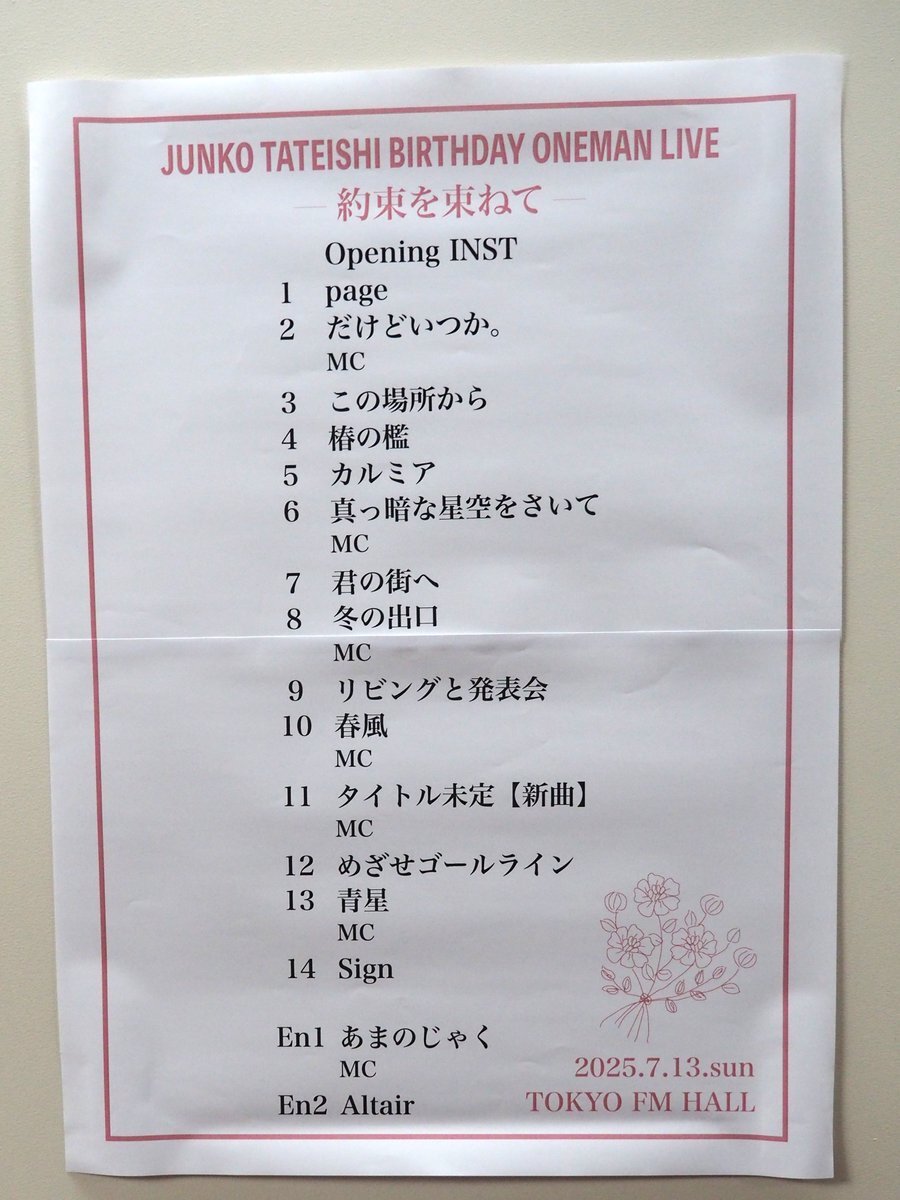 JUNKO TATEISHI BIRTHDAY ONEMAN LIVE
― 約束を束ねて ―
Opening INST
1 page
2 だけどいつか。
MC
3 この場所から
4 椿の檻
5 カルミア
6 真っ暗な星空をさいて
MC
7 君の街へ
8 冬の出口
MC
9 リビングと発表会
10 春風
MC
11 タイトル未定【新曲】
MC
12 めざせゴールライン
13 青星
MC
14 Sign
En1 あまのじゃく
MC
En2 Altair
2025.7.13.sun
TOKYO FM HALL